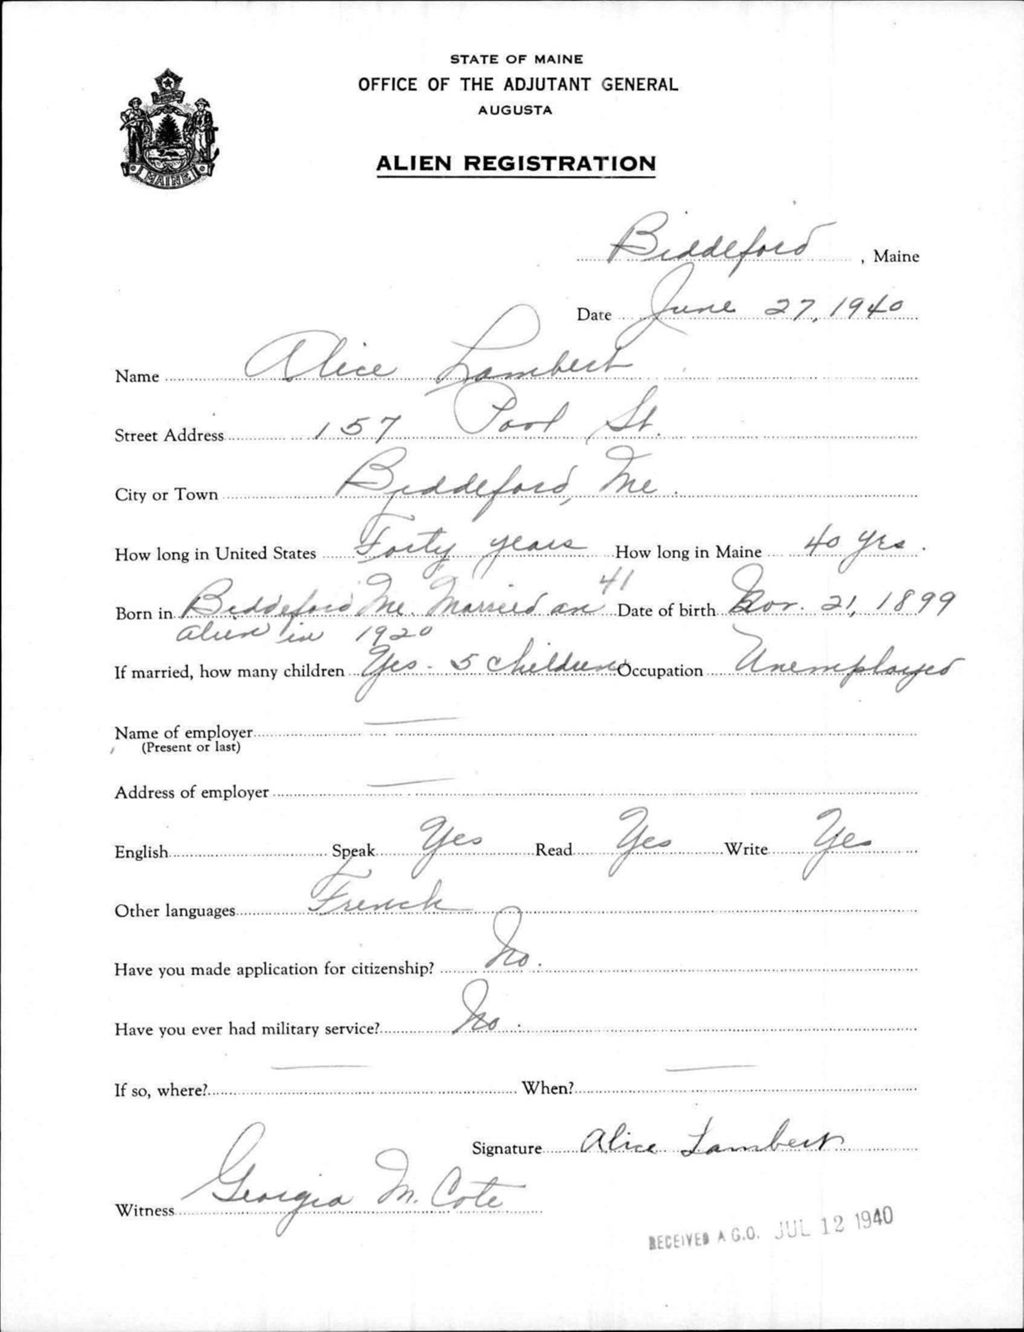 STATE OF MAINE
OFFICE OF THE ADJUTANT GENERAL
AUGUSTA
ALIEN REGISTRATION
MAINE
Biddeford, Maine
Date June 27, 1940
Name Alice Lambert
Street Address 157 Pool St.
City or Town Biddeford, Me.
How long in United States Forty years How long in Maine 40 yrs.
41
Born in Biddeford Me. Married an Date of birth Nov. 21, 1899
alien in 1920
If married, how many children Yes - 5 children Occupation Unemployed
Name of employer
(Present or last)
Address of employer
English Speak Yes Read Yes Write Yes
Other languages French
Have you made application for citizenship? No.
Have you ever had military service? No.
If so, where? When?
Signature Alice Lambert
Witness Georgia M. Cote
RECEIVED A.G.O. JUL 12 1940